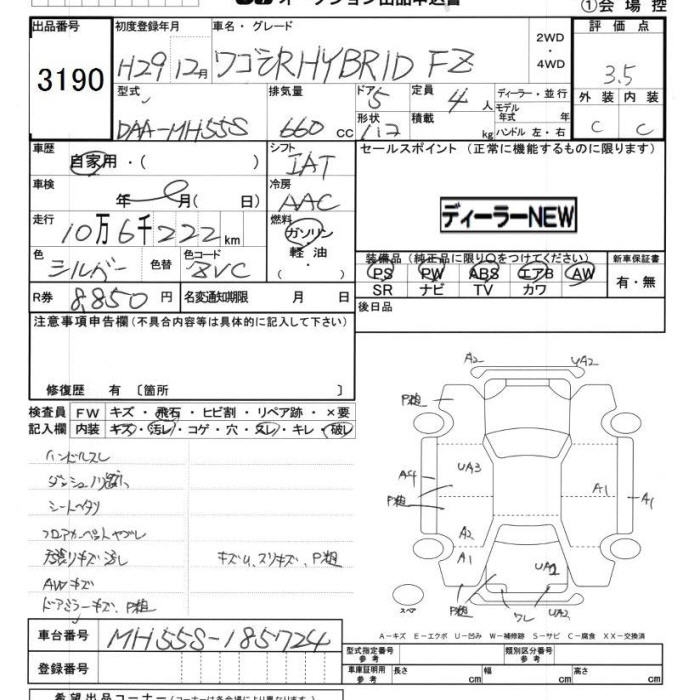 オークション出品申込書
①会場控
出品番号 初度登録年月 車名・グレード 2WD ・ 4WD 評価点
3190 H29 12月 ワゴンRHYBRID FZ 3.5
型式 排気量 ドア 5 定員 4人 ディーラー・並行 外装 内装
DAA-MH55S 660cc 形状 積載 kg モデル年式 年 ハンドル 左・右 C C
車歴 シフト セールスポイント (正常に機能するものに限ります)
自家用・( ) IAT
車検 年 月( 日) 冷房 AAC
ディーラーNEW
走行 10万6千222km 燃料 ガソリン・軽油・
色 シルバー 色替 色コード ZVC
装備品 (純正品に限り○をつけてください) 新車保証書
PS PW ABS エアB AW 有・無
SR ナビ TV カワ
R券 8,850円 名変通知期限 月 日
後日品
注意事項申告欄 (不具合内容等は具体的に記入して下さい)
修復歴 有 〔箇所 〕
検査員 FW キズ・飛石・ヒビ割・リペア跡・×要
記入欄 内装 キズ・汚レ・コゲ・穴・スレ・キレ・破レ
ハンドルスレ
シートヘタリ
天張りキズ汚し キズU、スリキズ、P粗
AWキズ
ドアミラーキズ、P粗
A2 UA2
P粗
UA3
A4
P粗
A1 A1
A2
A1
UA2
P粗 ワレ UA2
スペア
A-キズ E-エクボ U-凹み W-補修跡 S-サビ C-腐食 XX-交換済
車台番号 MH55S-185724
登録番号
型式指定番号 参考 類別区分番号 参考
車庫証明用 参考 長さ cm 幅 cm 高さ cm
希望出品コーナー (コーナーは各会場により異なります)